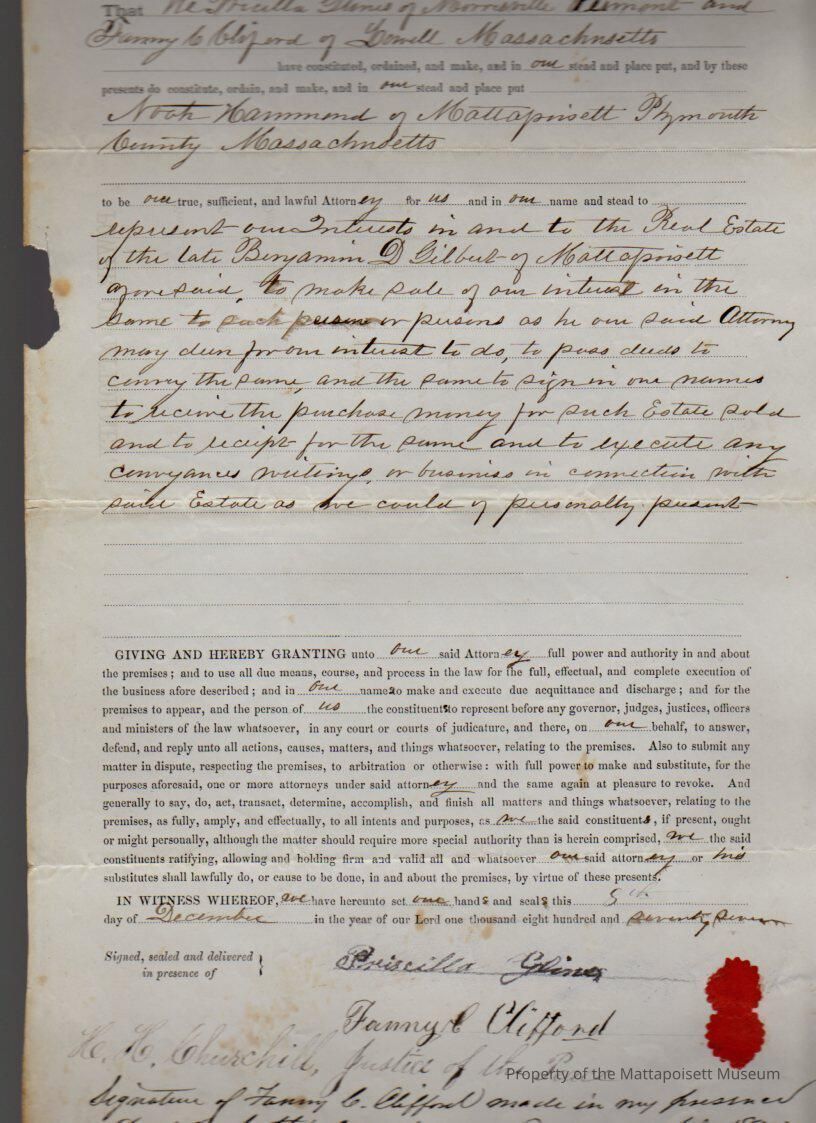 That We Priscilla Glines of Morrisville Vermont and
Fanny C Cliford of Lowell Massachusetts
have constituted, ordained, and make, and in our stead and place put, and by these
presents do constitute, ordain, and make, and in our stead and place put
Noah Hammond of Mattapoisett Plymouth
County Massachusetts
to be our true, sufficient, and lawful Attorney for us and in our name and stead to
represent our Interests in and to the Real Estate
of the late Benjamin D Gilbert of Mattapoisett
aforesaid, to make sale of our interest in the
same to such person or persons as he our said Attorney
may deem for our interest to do, to pass deeds to
convey the same, and the same to sign in our names
to receive the purchase money for such Estate sold
and to receipt for the same and to execute any
conveyances writings, or business in connection with
said Estate as we could if personally present
GIVING AND HEREBY GRANTING unto our said Attorney full power and authority in and about
the premises; and to use all due means, course, and process in the law for the full, effectual, and complete execution of
the business afore described; and in our names to make and execute due acquittance and discharge; and for the
premises to appear, and the person of us the constituents to represent before any governor, judges, justices, officers
and ministers of the law whatsoever, in any court or courts of judicature, and there, on our behalf, to answer,
defend, and reply unto all actions, causes, matters, and things whatsoever, relating to the premises. Also to submit any
matter in dispute, respecting the premises, to arbitration or otherwise: with full power to make and substitute, for the
purposes aforesaid, one or more attorneys under said attorney and the same again at pleasure to revoke. And
generally to say, do, act, transact, determine, accomplish, and finish all matters and things whatsoever, relating to the
premises, as fully, amply, and effectually, to all intents and purposes, as we the said constituents, if present, ought
or might personally, although the matter should require more special authority than is herein comprised, we the said
constituents ratifying, allowing and holding firm and valid all and whatsoever our said attorney or his
substitutes shall lawfully do, or cause to be done, in and about the premises, by virtue of these presents.
IN WITNESS WHEREOF, we have hereunto set our hands and seals this
day of December in the year of our Lord one thousand eight hundred and seventy seven
Signed, sealed and delivered
in presence of
Priscilla Glines
Fanny C Clifford
H. H. Churchill, Justice of the Peace
Property of the Mattapoisett Museum
Signature of Fanny C. Clifford made in my presence